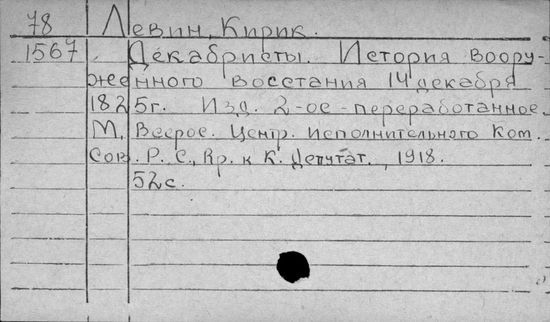 78 Левин, Кирик.
1567 Декабристы. История воору-
женного восстания 14 декабря
1825г. Изд. 2-ое - переработанное.
М, Всерос. Центр. исполнительного Ком.
Сов. Р. С., Кр. и К. Депутат., 1918.
52с.